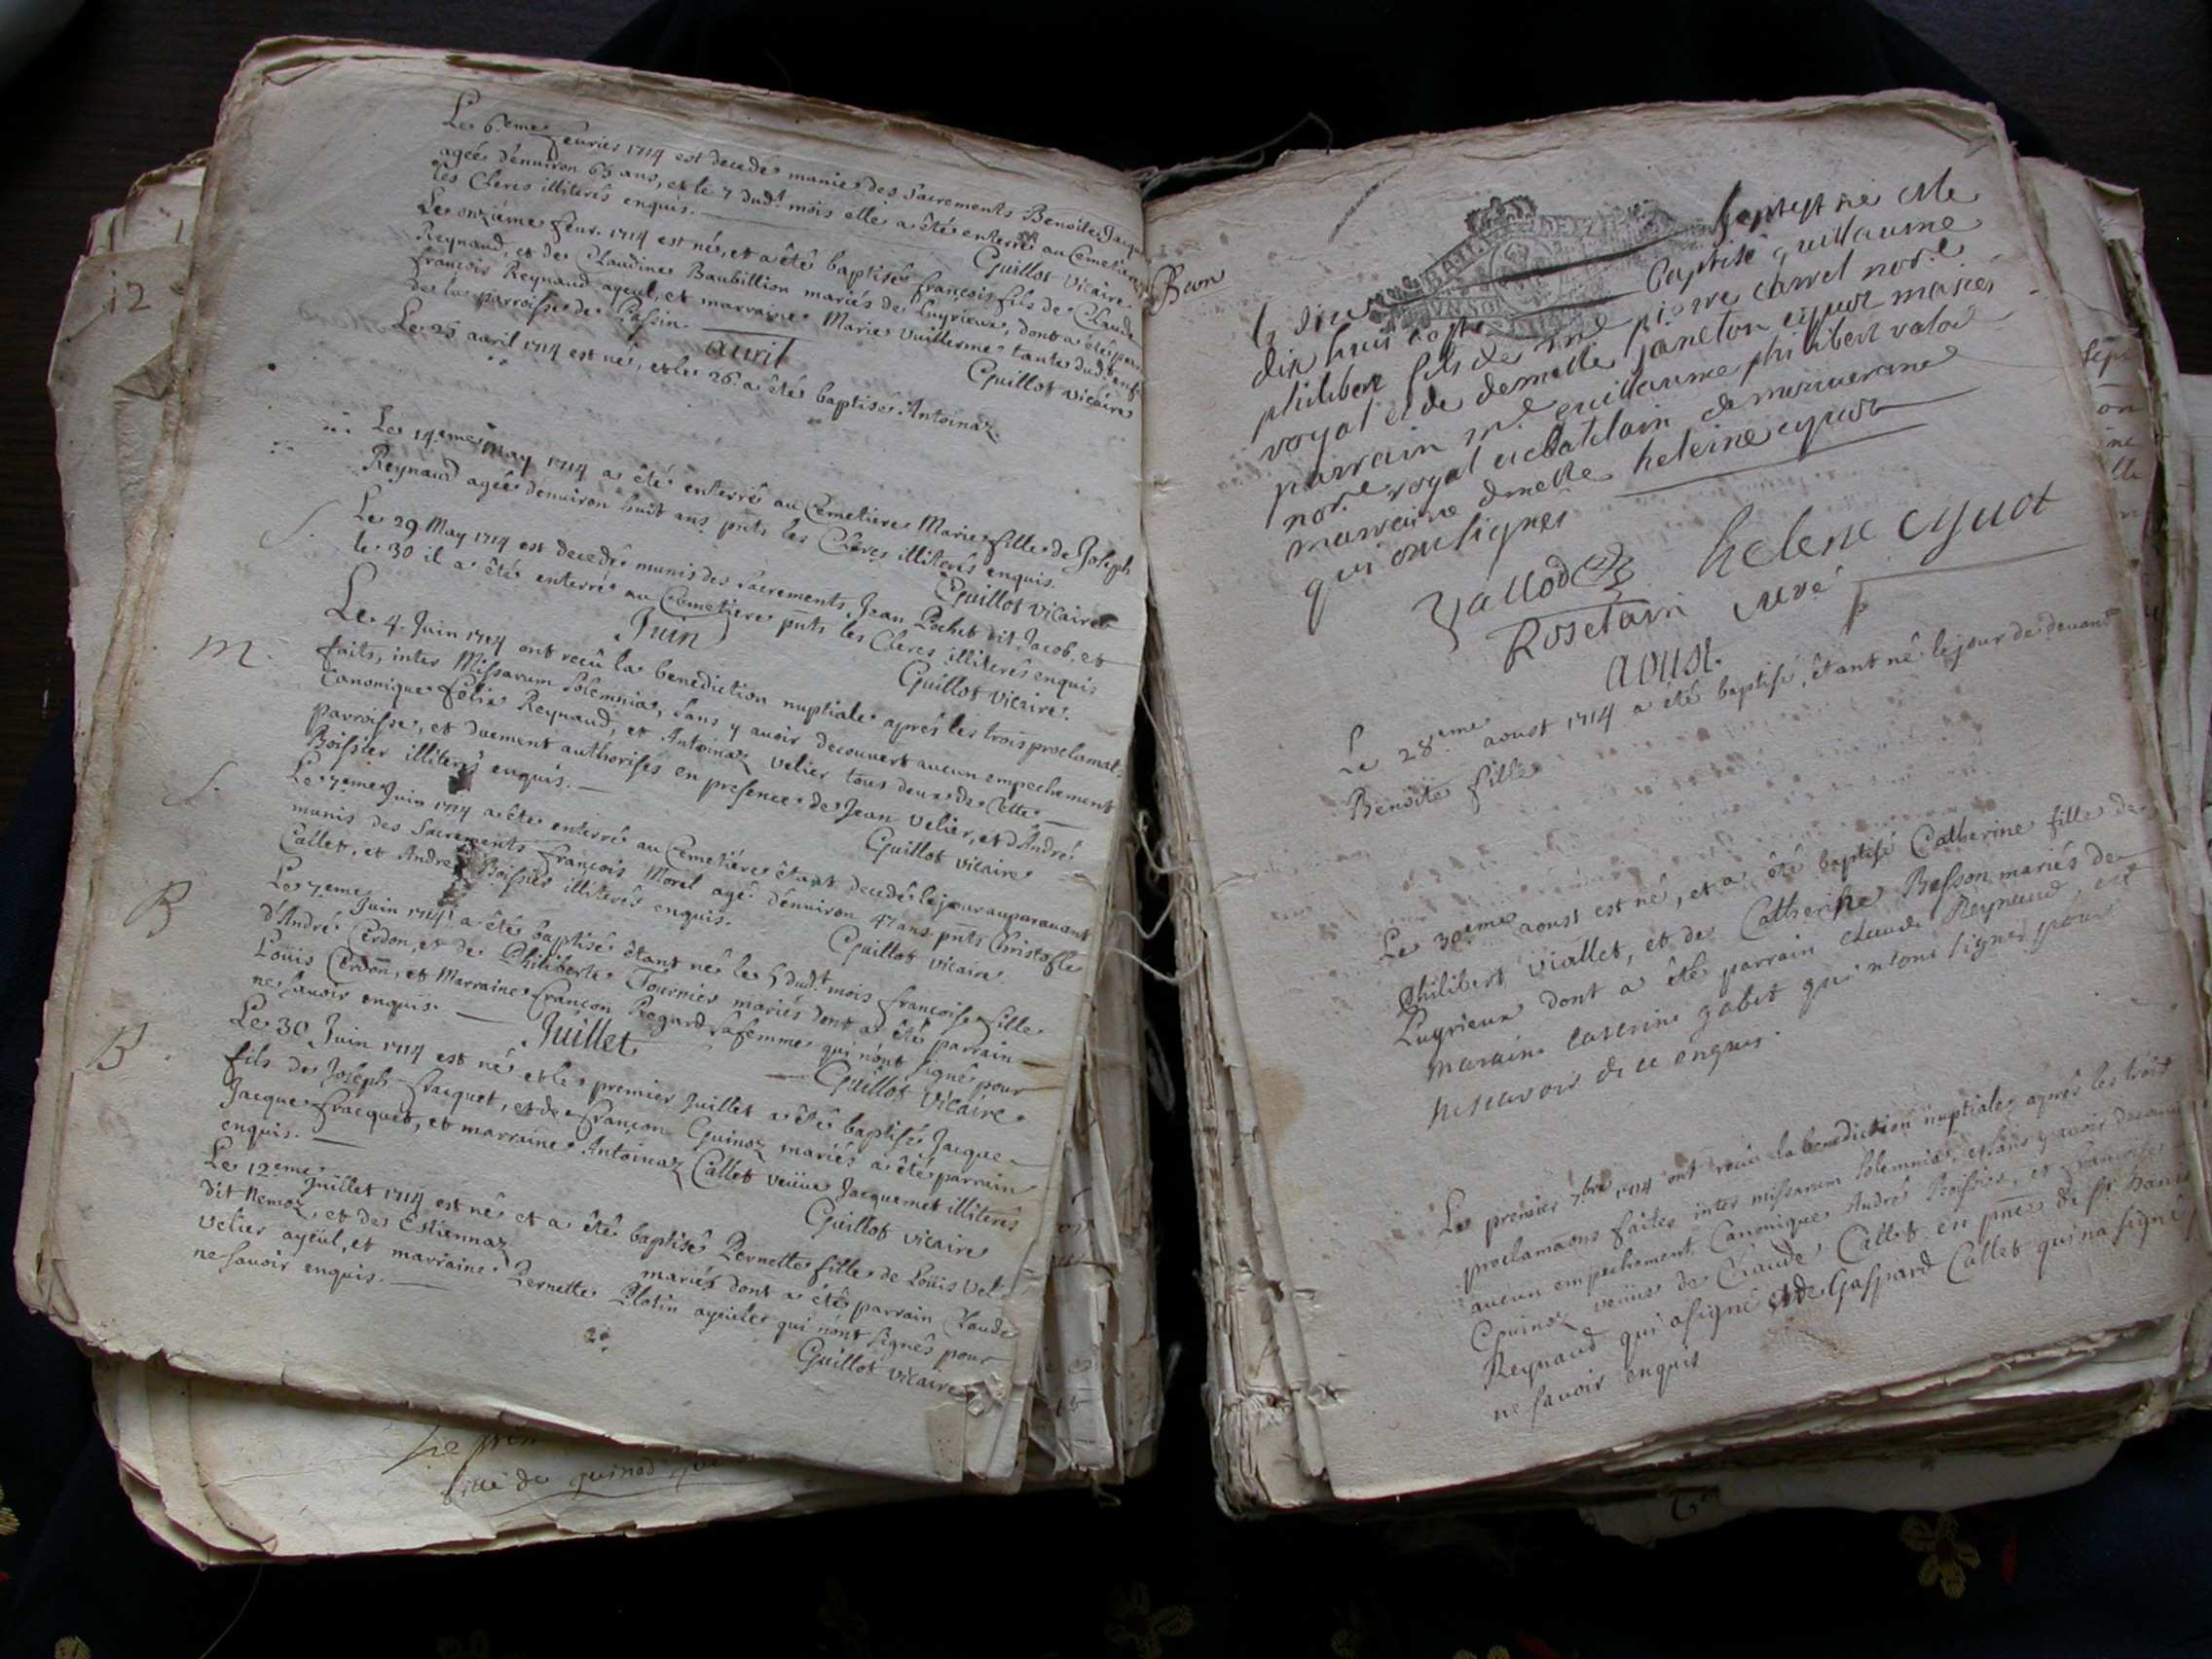 Le 6.eme feurier 1714 est decedé munie des Sacrements Benoite Jacqu
agée denuiron 65 ans, et le 7 dud.t mois elle a été enterré au Cemetiere
les Clercs illiterés enquis.
Guillot vicaire.
Le onzieme feur. 1714 est né, et a été baptisé françois fils de Claude
Reynaud, et de Claudine Baubillion mariés de Luyrieux, dont a été par
françois Reynaud ayeul, et marraine Marie Vuillerme tante dud.t enf
de la parroisse de
Guillot vicaire
auril
Le 25 auril 1714 est né, et le 26 a été baptisé Antoinaz
Le 14.eme May 1714 a été enterré au Cemetiere Marie fille de Joseph
Reynaud agée denuiron huit ans pnts les Clercs illiterés enquis.
Guillot vicaire
S.
Le 29 May 1714 est decedé munis des Sacrements Jean Pochet dit Jacob, et
le 30 il a été enterré au Cemetiere pnts les Clercs illiterés enquis
Guillot vicaire.
Juin
m.
Le 4. Juin 1714 ont recû la benediction nuptiale aprés les trois proclamat.
faits, inter Missarum Solemnia, sans y auoir decouvert aucun empechement
Canonique felix Reynaud, et Antoinaz Velier tous deux de Cette
parroisse, et duement authorisés en presence de Jean Velier, et d'André
Boissier illiterés enquis.
Guillot vicaire
S.
Le 7eme Juin 1714 a été enterré au Cemetiere étant decedé le jour auparauant
munis des Sacrements françois Morel agé denuiron 47 ans pnts Christofle
Callet, et André Boissier illiterés enquis.
Guillot vicaire.
B
Le 7eme Juin 1714 a été baptisé étant né le 5 dud.t mois françoise fille
d'André Cerdon, et de Philiberte Tournier mariés dont a été parrain
Loüis Cerdon, et Marraine françon Regard sa femme qui n'ont signé pour
ne sauoir enquis.
Guillot Vicaire
Juillet
B.
Le 30 Juin 1714 est né et le premier Juillet a été baptisé Jacque
fils de Joseph fracquet, et de françon Guinoz mariés a été parrain
Jacque fracquet, et marraine Antoinaz Callet veüue Jacquemet illiterés
enquis.
Guillot vicaire
Le 12eme Juillet 1714 est né et a été baptisé Pernette fille de Loüis Vel
dit Nemoz, et de Estiennaz mariés dont a été parrain Claude
velier ayeul, et marraine Pernette Plotin ayeule qui n'ont signés pour
ne sauoir enquis.
Guillot vicaire
12
fille de guinod
dix huit baptisé guillaume
philibert fils de pierre carrel nor.e
royal et de demelle janeton cyuot maries
parrain m.e guillaume philibert valod
nor.e royal et chatelain de
marraine dmelle heleine cyuot
qui ont signes
Vallod helene cyuot
Rosetain curé
aoust.
Le 28eme aoust 1714 a été baptisé, étant né le jour de deuant
Benoite fille
Le 30eme aoust est né, et a été baptisé Catherine fille de
Philibert Viallet, et de Catherine Besson mariés de
Luyrieux dont a été parrain claude Reynaud, et
maraine caterine gobet qui n'ont signes pour
ne scavoir de ce enquis.
Le premier 7bre 1714 ont recu la benediction nuptiale aprés les trois
proclamaons faites inter missarum solemnia, et sans y auoir decouu
aucun empechement Canonique André Boissier, et françoise
Guinoz veüue de Claude Callet en pnce de
Reynaud qui a signé et de Gaspard Callet qui n'a signé
ne sauoir enquis